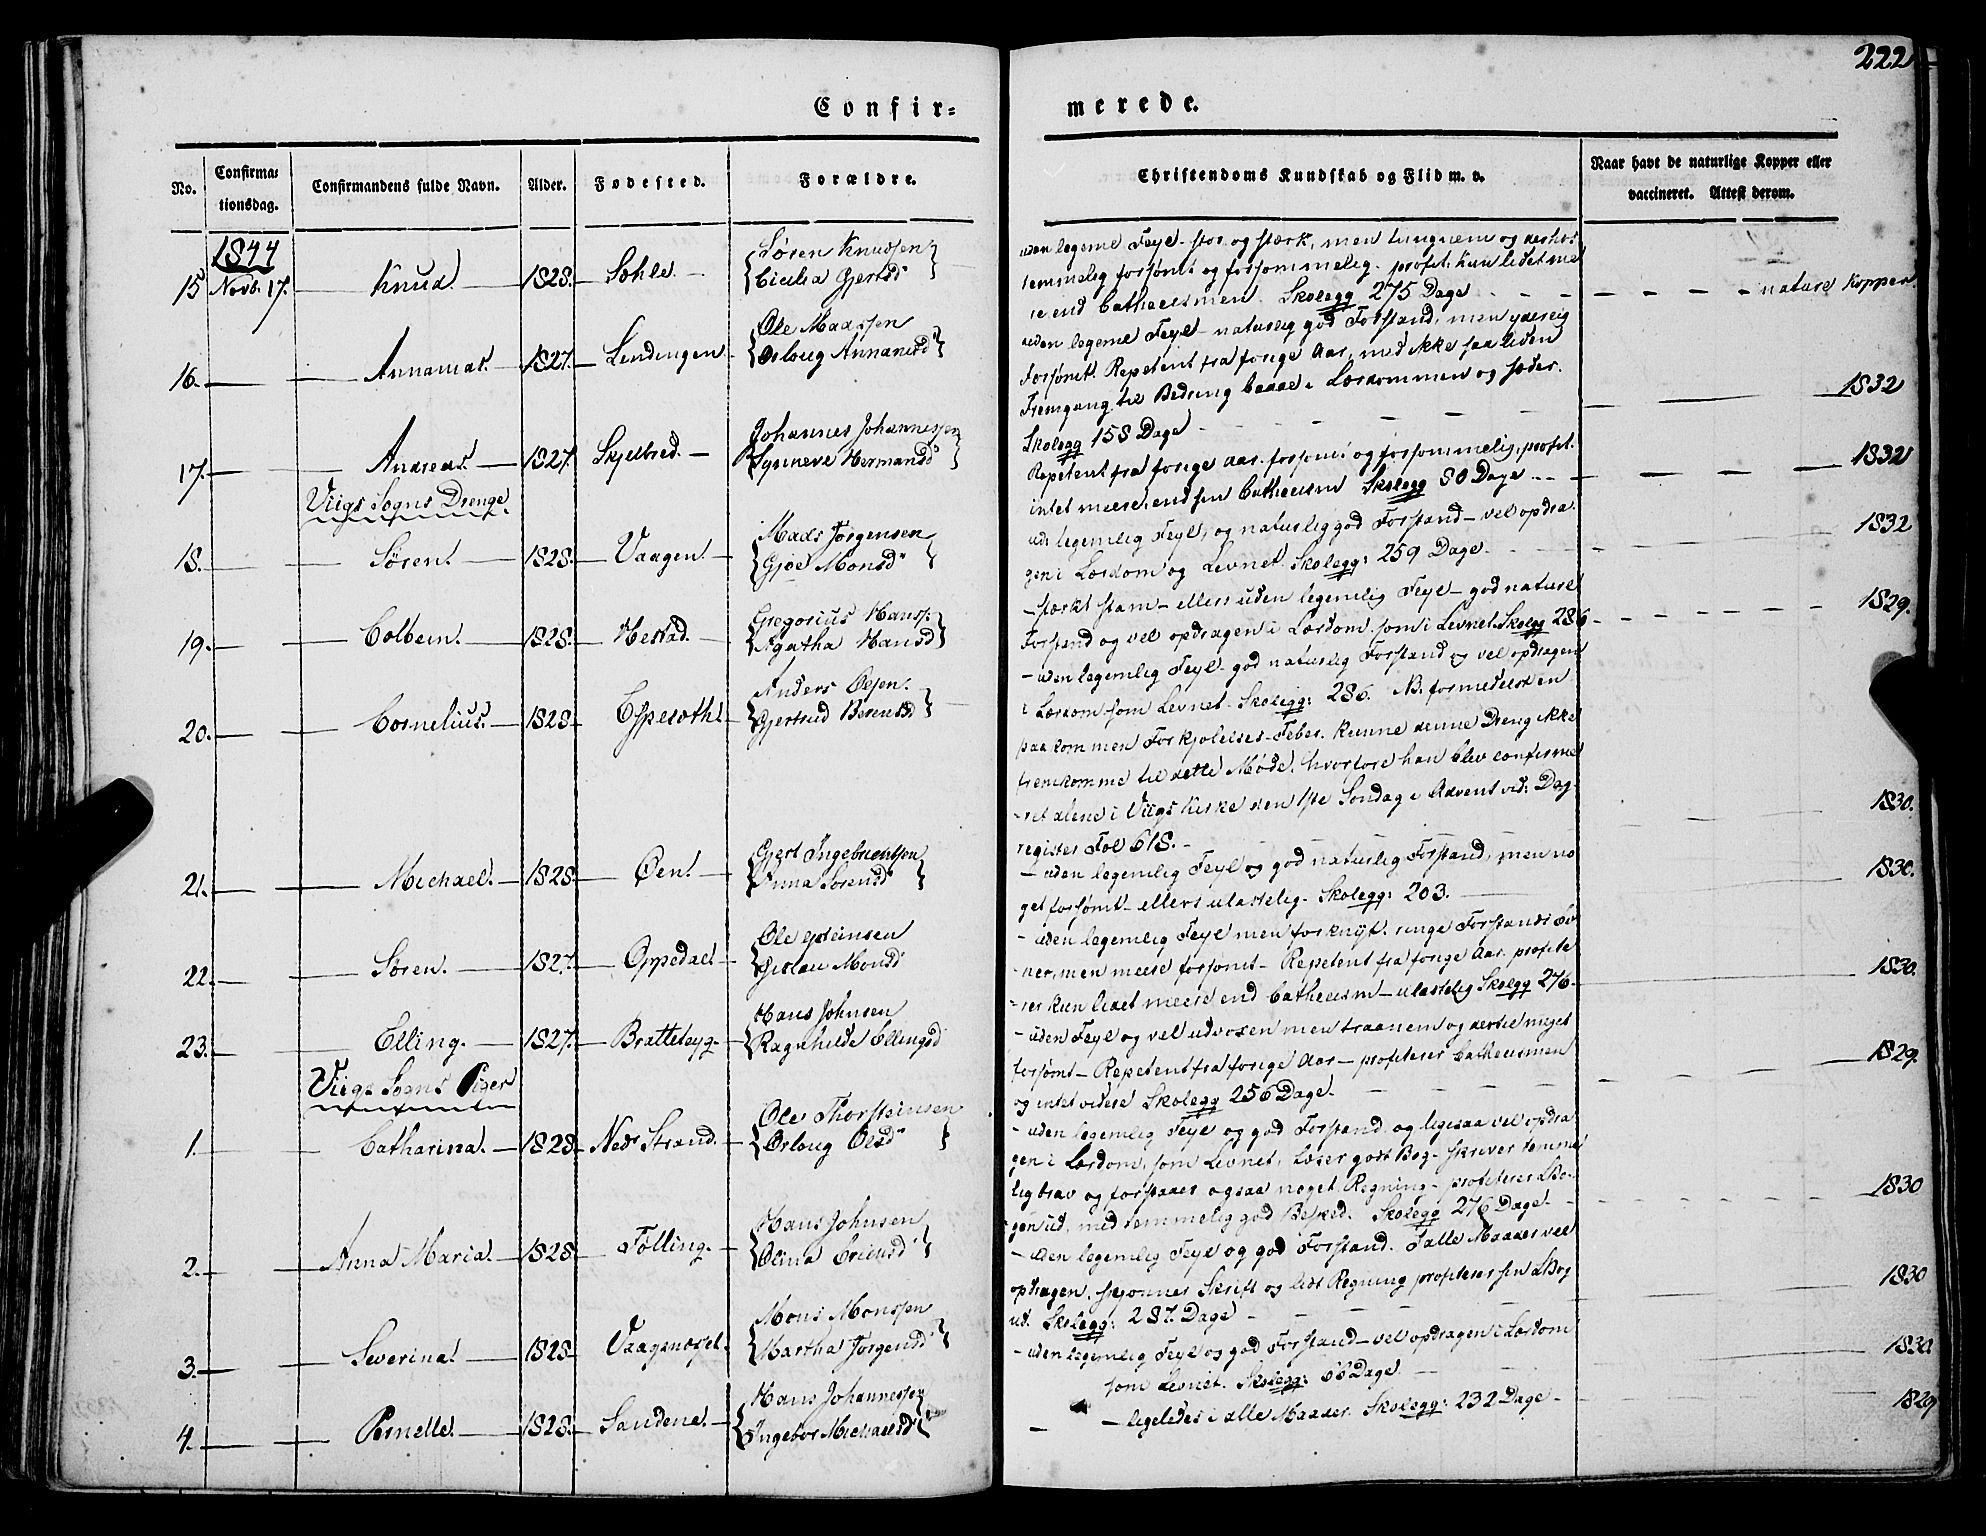 222
Confir=
merede.
No.
Confirma=
tionsdag.
Confirmandens fulde Navn.
Alder.
Fødested.
Forældre.
Christendoms Kundskab og Flid m. v.
Naar havt de naturlige Kopper eller
vaccineret. Attest derom.
1844
15 Novb. 17. Knud. 1828. Søhle. Sören Knudsen
Cicilia Gjertsd
uden legeme Feyl. stor og stærk, men tungnem og derhos
temmelig forsømt og forsømmelig. profit. kun lidet me
re end Cathecismen. Skolegg 275 Dage
nature Kopper
16. Annanias. 1827. Lendingen Ole Madssen
Orloug Annaniasd
uden legeme Feyl naturlig god Forstand, men yderlig
forsømt. Repetent fra forige Aar, med ikke saa liden
Fremgang til Bedring baade i Lærdommen og Sæder.
Skolegg 158 Dage
1832
17. Andreas. 1827. Skjelbred. Johannes Johannessen
Synneve Hermansd
Repetent fra forige aar. forsømt og forsømmelig, profit.
intet meere, end sin Cathecism Skolegg 80 Dage
1832
Viigs Sogns Drenge.
18. Sören. 1828. Vaagen. Mads Jörgensen
Gjöe Monsd
ud: legemlig Feyl, og naturlig god Forstand – vel opdra-
gen i Lærdom og Levnet. Skolegg: 259 Dage.
1832
19. Colbein. 1828. Hestad. Gregorius Hanss:
Agatha Hansd
– stærkt stam – ellers uden legemlig Feyl – god naturel
Forstand og vel opdragen i Lærdom som i Levnet. Skolegg 286
1829.
20. Cornelius. 1828. Anders Olsen.
Gjertrud Berentsd
– uden legemlig Feyl – god naturlig Forstand og vel opdragen
i Lærdom som Levnet. Skolegg: 286. NB. formedelst en
paakommen Forkjølelses-Feber kunne denne Dreng ikke
fremkomme til dette Møde, hvorfore han blev confirme
ret alene i Viigs Kirke den 1ste Søndag i Advent vid: Dag-
register Fol 618.
1830.
21. Michael. 1828. Öen. Gjert Ingebrechtsen
Anna Sörensd
– uden legemlig Feyl og god naturlig Forstand, men no
get forsømt – ellers ulastelig. Skolegg: 203.
1830.
22. Sören. 1827. Oppedal. Ole
Monsd
– uden legemlig Feyl men forknyt. ringe Forstands Ev
ner, men meere forsømt – Repetent fra forige Aar. profite
rer kun lidet meere end Cathecism – ulastelig Skolegg 276.
1830.
23. Elling. 1827. Bratteteyg. Hans Johnsen
Ragnhilde Ellingsd
– uden Feyl og vel udvoxen men traanem og dertil meget
forsømt – Repetent fra forige Aar – profiterer Cathecismen
og intet videre Skolegg 256 Dage.
1829.
Viigs Sogns Piger
1. Catharina. 1828. Nedr Strand. Ole Thorsteinsen
Orloug Olsd
– uden legemlig Feyl og god Forstand og ligesaa vel opdra-
gen i Lærdom, som Levnet, Læser godt Bog – skriver temme
lig brav og forstaaer ogsaa noget Regning – profiterer LBo-
gen ud, med temmelig god Besked. Skolegg 276 Dage.
1830
2. Anna Maria. 1828. Fölling. Hans Johnsen
Olina
– uden legemlig Feyl og god Forstand. I alle Maader vel
opdragen, skjønner Skrift og lidt Regning profiterer sin LBog
ud. Skolegg: 287. Dage
1830
3. Severina. 1828 Mons Monssen
Martha Jörgensd
– uden legemlig Feyl og god Forstand – vel opdragen i Lærdom
som Levnet. Skolegg: 66 Dage.
1830.
4. Pernelle. 1828. Sandene. Hans Johannessen
Ingebor Michaelsd
– ligeledes i alle Maader. Skolegg: 232 Dage –
1829